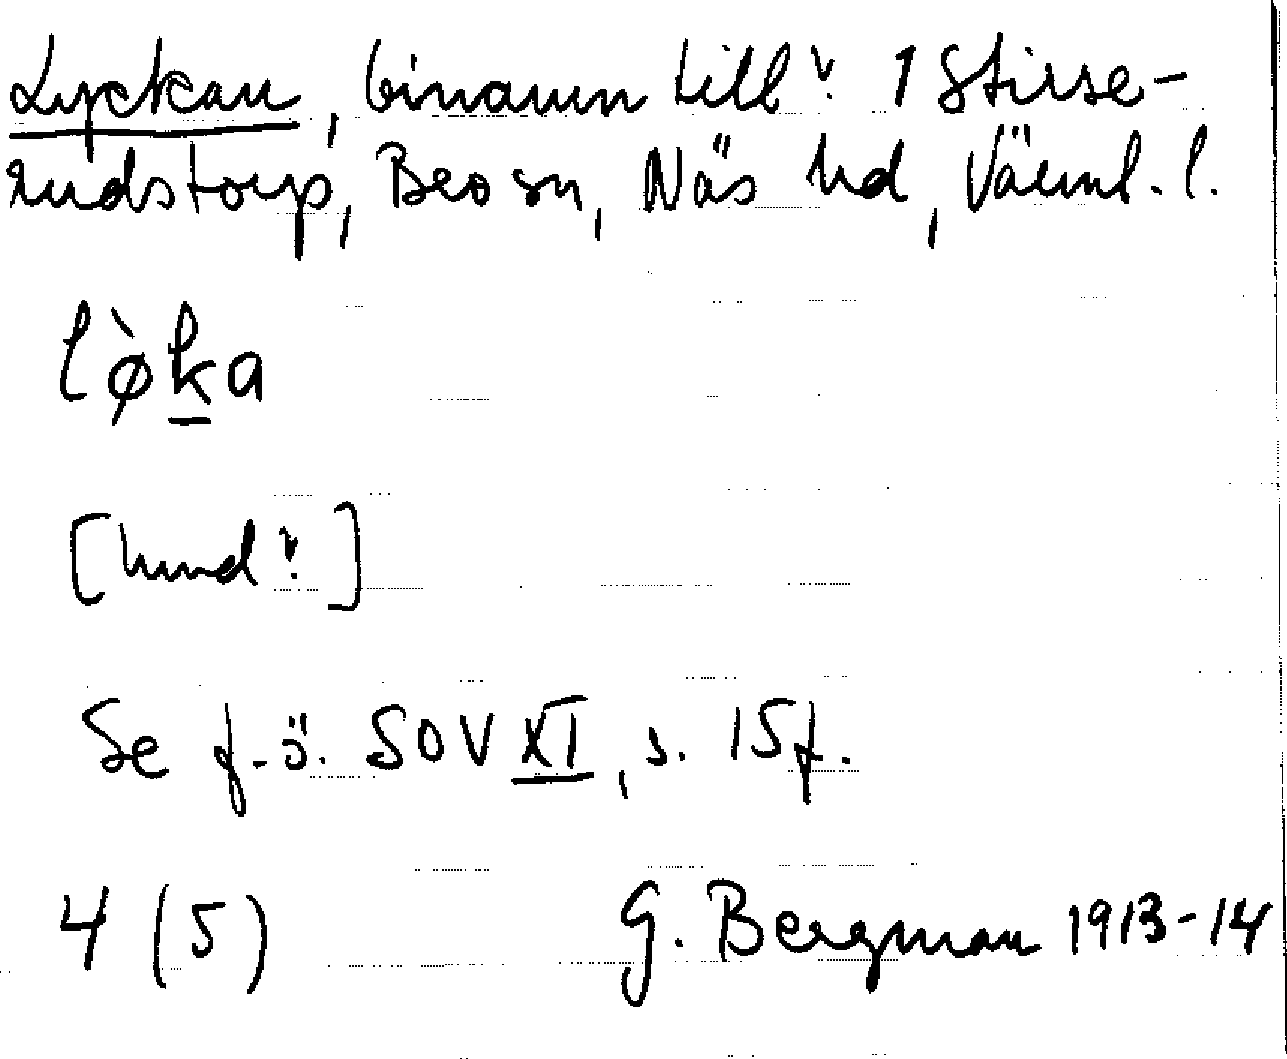 Lyckan, binamn till v. 1 Stirse-
rudstorp, Bro sn, Näs hd, Värml. l.
lø̀ka
[hund v.]
Se f. ö. SOV XI, s. 15 f.
4 (5) G. Bergman 1913-14